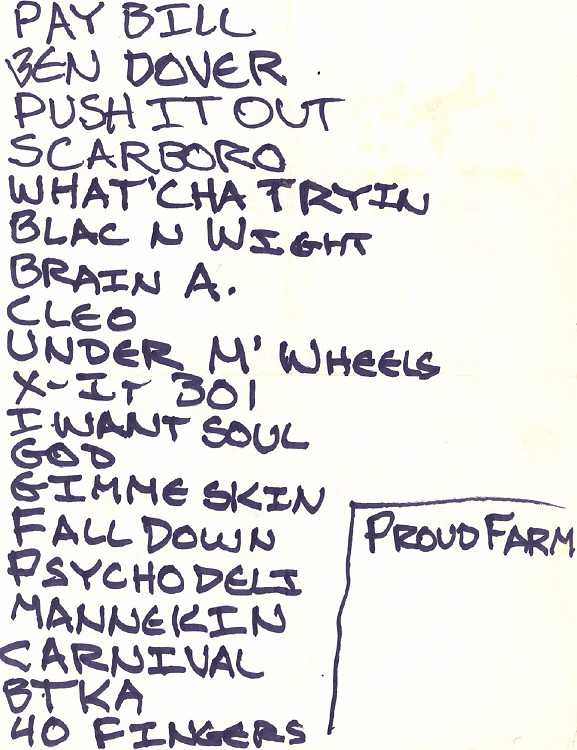 PAY BILL
BEN DOVER
PUSH IT OUT
SCARBORO
WHAT'CHA TRYIN
BLAC N WIGHT
BRAIN A.
CLEO
UNDER M' WHEELS
X-IT 301
I WANT SOUL
GOD
GIMME SKIN
FALL DOWN
PSYCHO DELI
MANNEKIN
CARNIVAL
BTKA
40 FINGERS
PROUD FARM